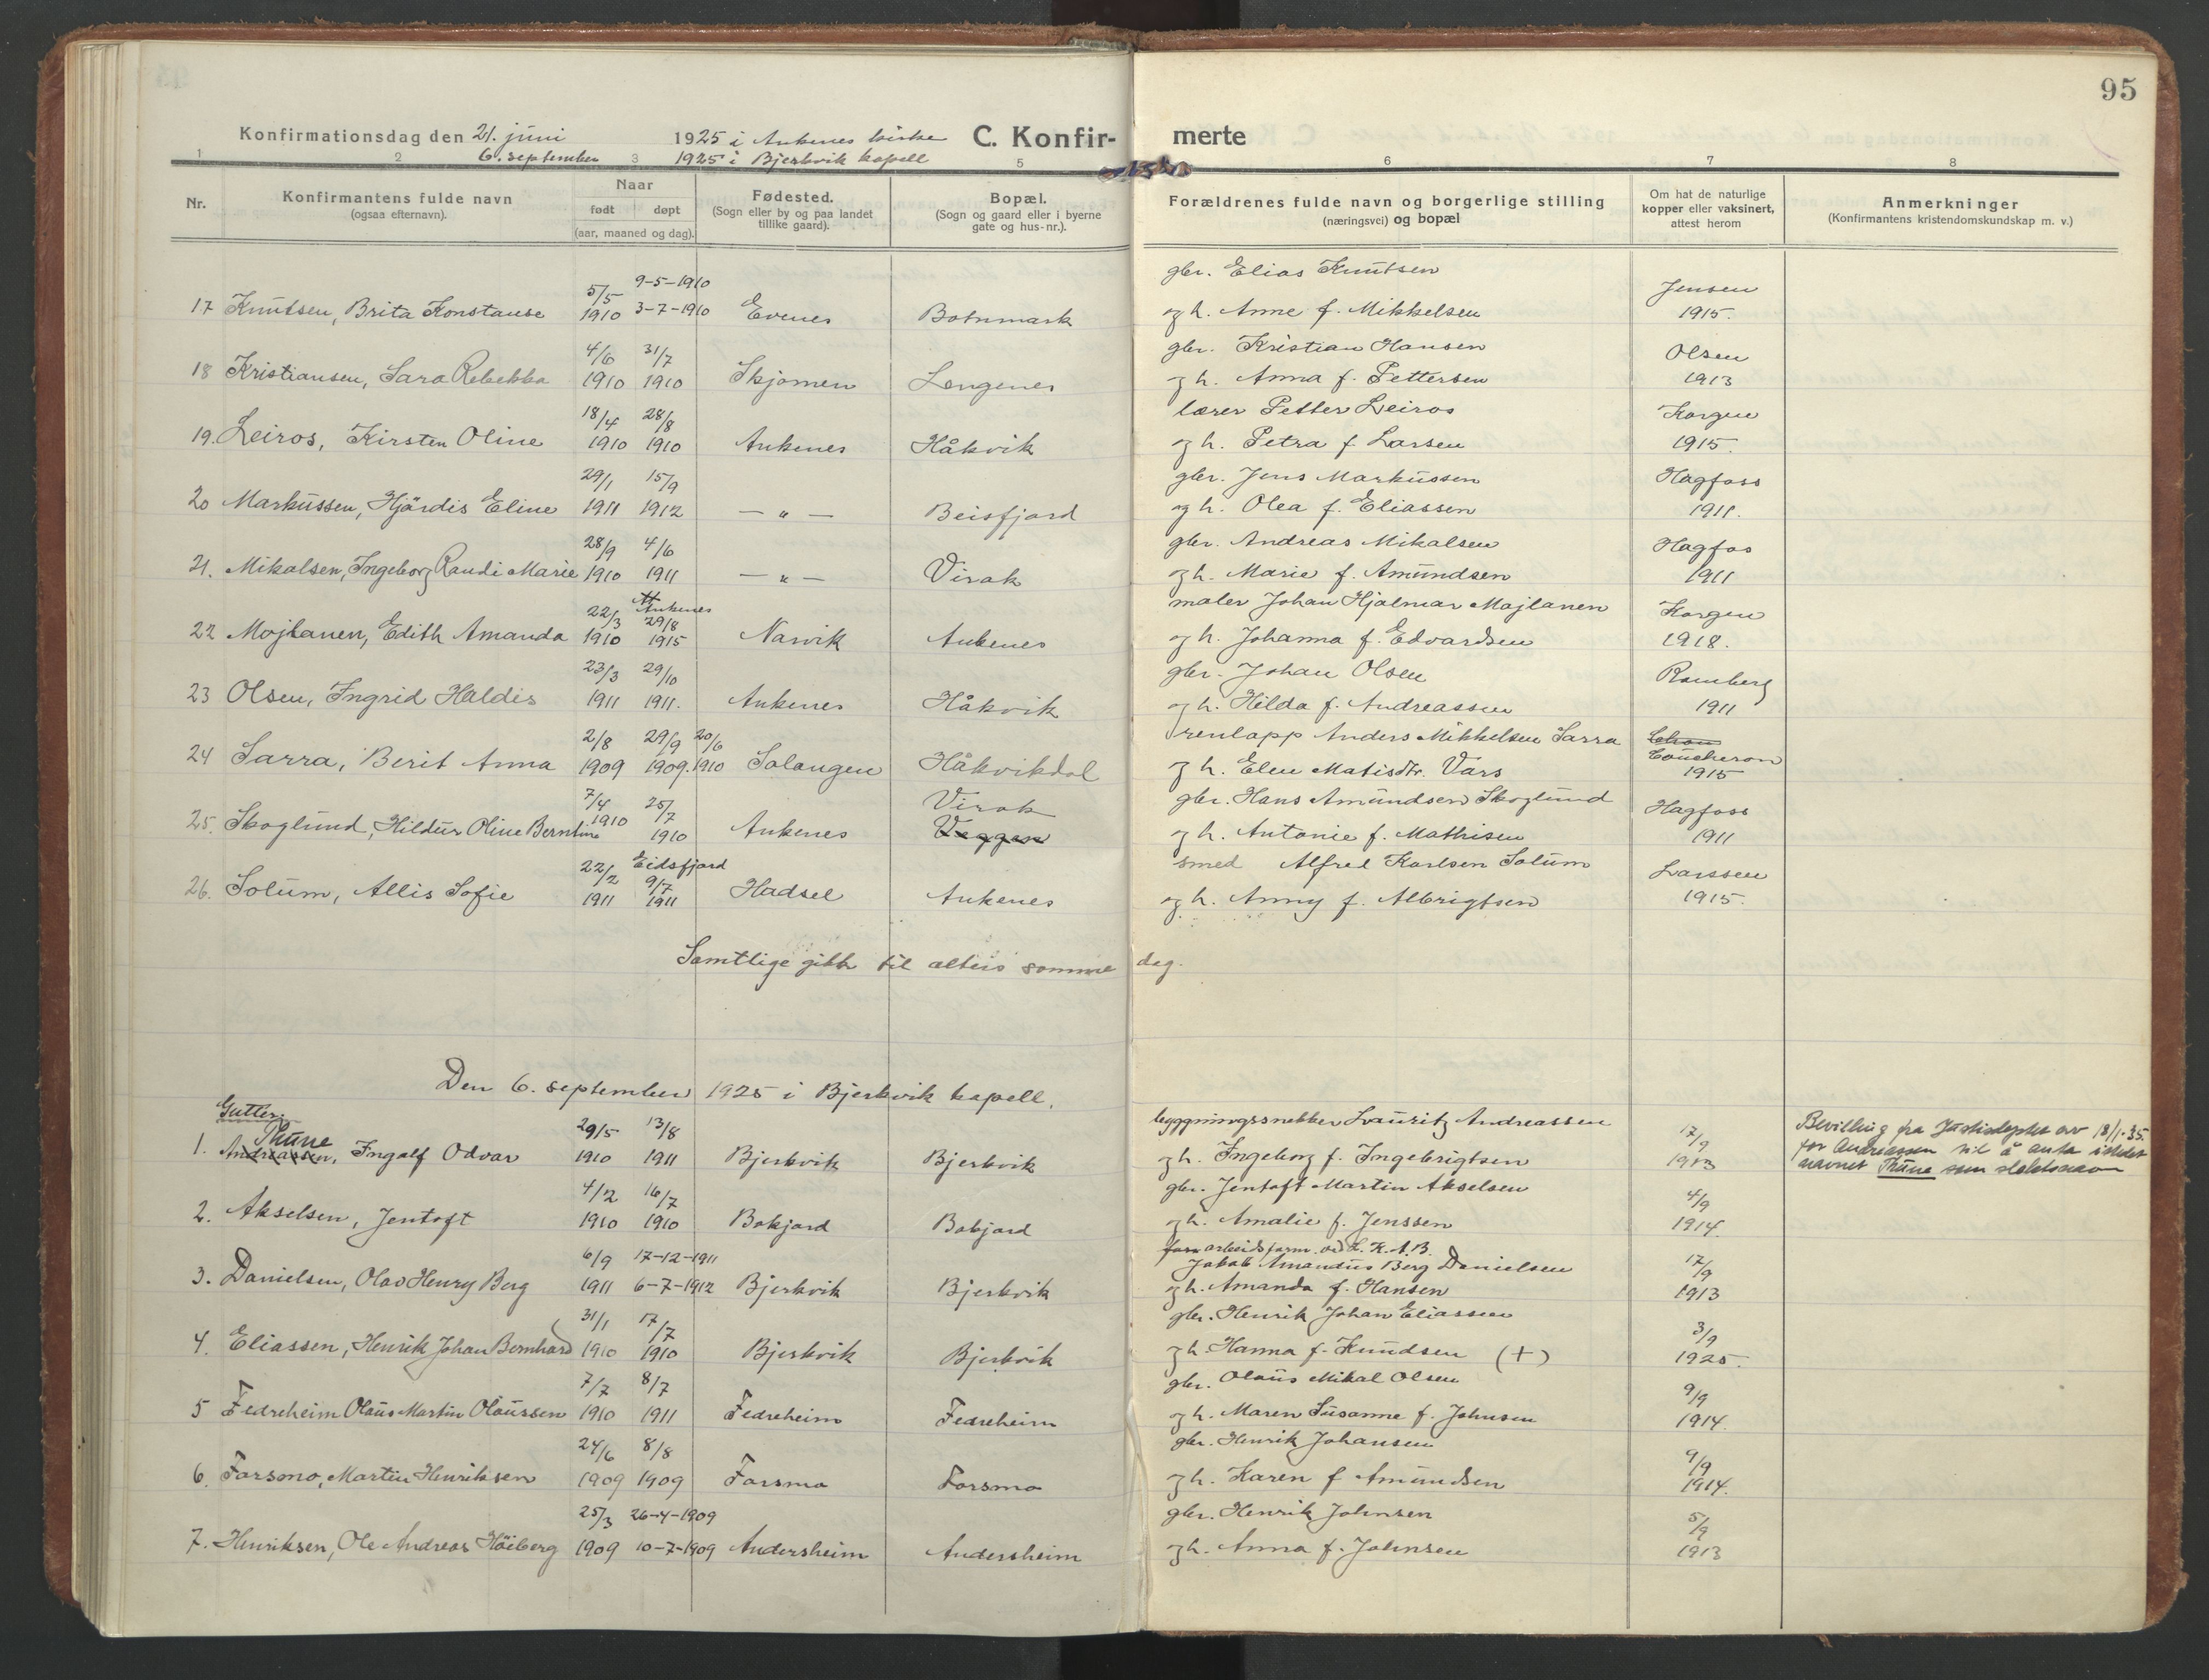 95
Konfirmationsdag den 21. juni 1925 i Ankenes kirke C. Konfir- merte
6. september 1925 i Bjerkvik kapell
1 2 3 5 6 7 8
Nr. Konfirmantens fulde navn (ogsaa efternavn). Naar født døpt (aar, maaned og dag). Fødested. (Sogn eller by og paa landet tillike gaard). Bopæl. (Sogn og gaard eller i byerne gate og hus-nr.). Forældrenes fulde navn og borgerlige stilling (næringsvei) og bopæl Om hat de naturlige kopper eller vaksinert, attest herom Anmerkninger (Konfirmantens kristendomskundskap m. v.)
5/5 9-5-1910 gbr. Elias Knutsen Jensen
17 Knutsen, Brita Konstanse 1910 3-7-1910 Evenes Botnmark og h. Anne f. Mikkelsen 1915.
4/6 31/7 gbr. Kristian Hansen Olsen
18 Kristiansen, Sara Rebekka 1910 1910 Skjomen Lengenes og h. Anna f. Pettersen 1913
18/4 28/8 lærer Petter Leiros Korgen
19. Leiros, Kirsten Oline 1910 1910 Ankenes Håkvik og h. Petra f. Larsen 1915.
29/1 15/9 gbr. Jens Markussen Hagfoss
20 Markussen, Hjördis Eline 1911 1912 — " — Beisfjord og h. Olea f. Eliassen 1911.
28/9 4/6 gbr. Andreas Mikalsen Hagfos
21. Mikalsen, Ingeborg Randi Marie 1910 1911 — " — Virak og h. Marie f. Amundsen 1911
22/3 Ankenes 29/8 maler Johan Hjalmar Majlanen Korgen
22 Mojlanen, Edith Amanda 1910 1915 Narvik Ankenes og h. Johanna f. Edvardsen 1918.
23/3 29/10 gbr. Johan Olsen Ramberg
23 Olsen, Ingrid Haldis 1911 1911. Ankenes Håkvik og h. Hilda f. Andreassen 1911
2/8 29/9 20/6 renlapp Anders Mikkelsen Sarra
24 Sarra, Berit Anna 1909 1909. 1910 Salangen Håkvikdal og h. Elen Matisdtr. Vars Coucheron 1915
7/4 25/7 Virak gbr. Hans Amundsen Skoglund Hagfoss
25. Skoglund, Hildur Oline Berntine 1910 1910 Ankenes Veggen og h. Antonie f. Mathisen 1911
22/2 Eidsfjord 9/7 smed Alfred Karlsen Solum Larssen
26. Solum, Allis Sofie 1911 1911 Hadsel Ankenes og h. Anny f. Albrigtsen 1915.
Samtlige gikk til alters samme dag.
Den 6. september 1925 i Bjerkvik kapell.
Gutter.
Thune 29/5 13/8 bygningssnekker Lauritz Andreassen 17/9 Bevilling fra Justisdeptet av 18/1-35
1. Andreassen, Ingolf Odvar 1910 1911 Bjerkvik Bjerkvik og h. Ingeborg f. Ingebrigtsen 1913 for Andreassen til å anta istedet
navnet Thune som slektsnavn
4/2 16/7 gbr. Jentoft Martin Akselsen 4/9
2. Akselsen, Jentoft 1910 1910 Bokjord Bokjord og h. Amalie f. Jenssen 1914.
arbeidsform. ved L. K. A. B.
6/9 17-12-1911 Jakob Amandus Berg Danielsen 17/9
3. Danielsen, Olav Henry Berg 1911 6-7-1912 Bjerkvik Bjerkvik og h. Amanda f. Hansen 1913
31/1 17/7 gbr. Henrik Johan Eliassen 3/9
4. Eliassen, Henrik Johan Bernhard 1910 1910 Bjerkvik Bjerkvik og h. Hanna f. Knudsen (+) 1925.
7/7 8/7 gbr. Olaus Mikal Olsen 9/9
5 Fedreheim Olaus Martin Olaussen 1910 1911 Fedreheim Fedreheim og h. Maren Susanne f. Johnsen 1914.
24/6 8/8 gbr. Henrik Johansen 9/9
6. Forsmo, Martin Henriksen 1909 1909 Forsmo Forsmo og h. Karen f Amundsen 1914.
25/3 26-4-1909 gbr. Henrik Johnsen 5/9
7. Henriksen, Ole Andreas Höiberg 1909 10-7-1909 Andersheim Andersheim og h. Anna f. Johnsen 1913